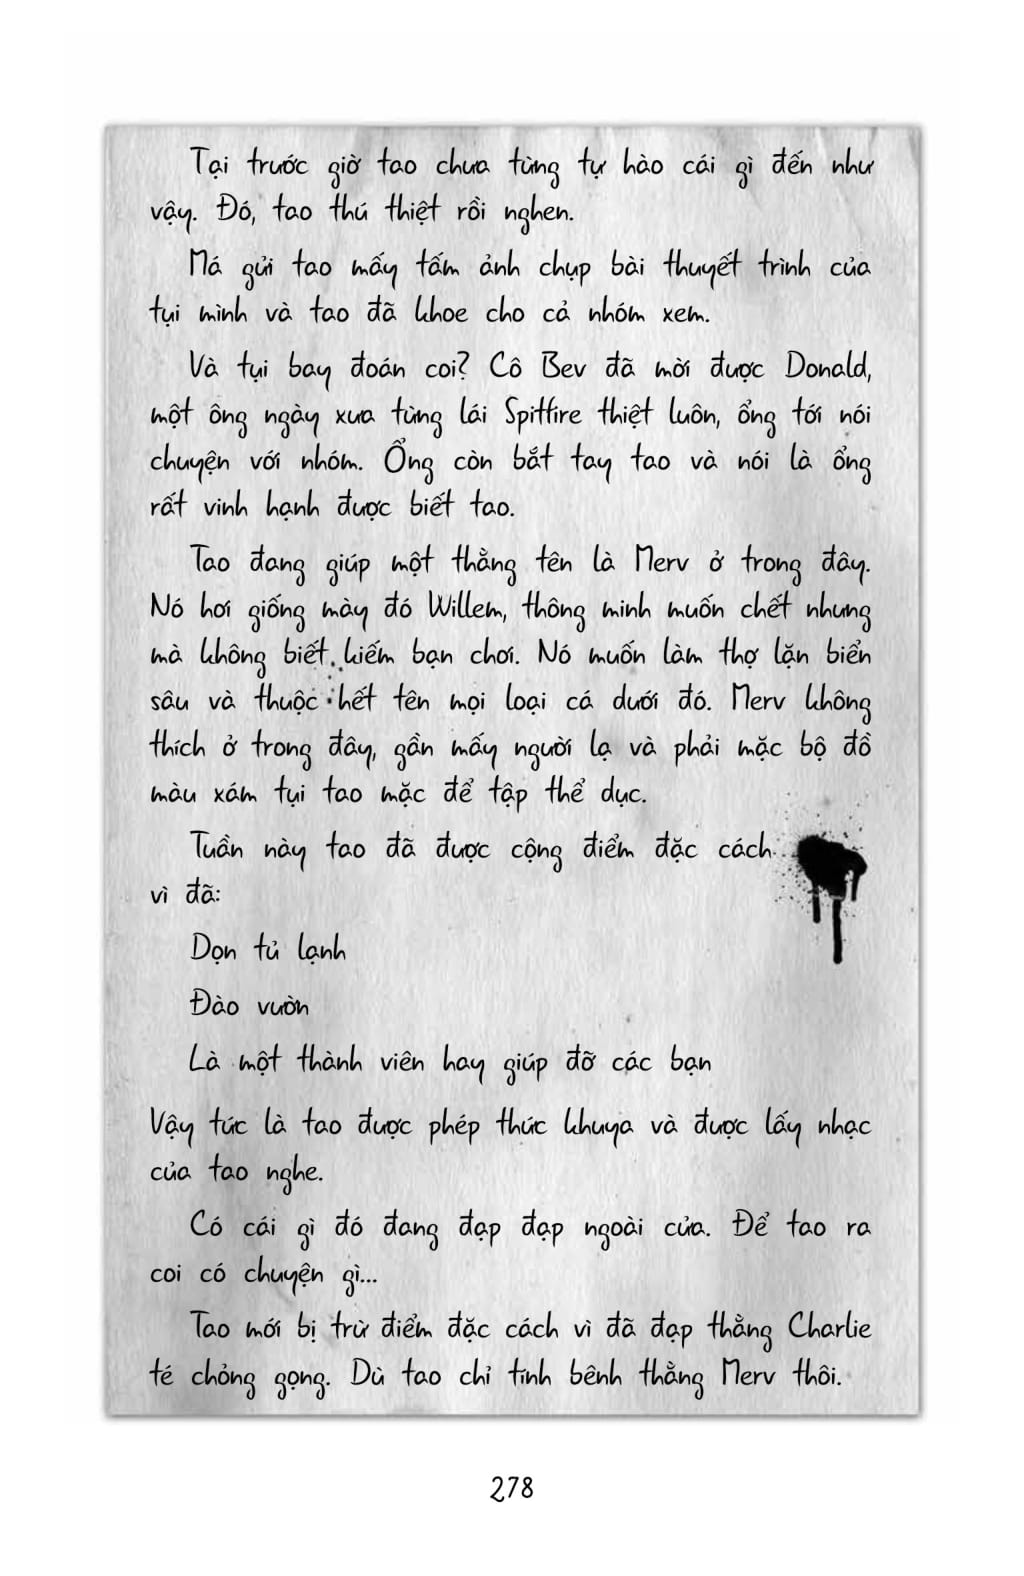 Tại trước giờ tao chưa từng tự hào cái gì đến như
vậy. Đó, tao thú thiệt rồi nghen.
Má gửi tao mấy tấm ảnh chụp bài thuyết trình của
tụi mình và tao đã khoe cho cả nhóm xem.
Và tụi bay đoán coi? Cô Bev đã mời được Donald,
một ông ngày xưa từng lái Spitfire thiệt luôn, ổng tới nói
chuyện với nhóm. Ổng còn bắt tay tao và nói là ổng
rất vinh hạnh được biết tao.
Tao đang giúp một thằng tên là Merv ở trong đây.
Nó hơi giống mày đó Willem, thông minh muốn chết nhưng
mà không biết kiếm bạn chơi. Nó muốn làm thợ lặn biển
sâu và thuộc hết tên mọi loại cá dưới đó. Merv không
thích ở trong đây, gần mấy người lạ và phải mặc bộ đồ
màu xám tụi tao mặc để tập thể dục.
Tuần này tao đã được cộng điểm đặc cách
vì đã:
Dọn tủ lạnh
Đào vườn
Là một thành viên hay giúp đỡ các bạn
Vậy tức là tao được phép thức khuya và được lấy nhạc
của tao nghe.
Có cái gì đó đang đạp đạp ngoài cửa. Để tao ra
coi có chuyện gì...
Tao mới bị trừ điểm đặc cách vì đã đạp thằng Charlie
té chỏng gọng. Dù tao chỉ tính bênh thằng Merv thôi.
278